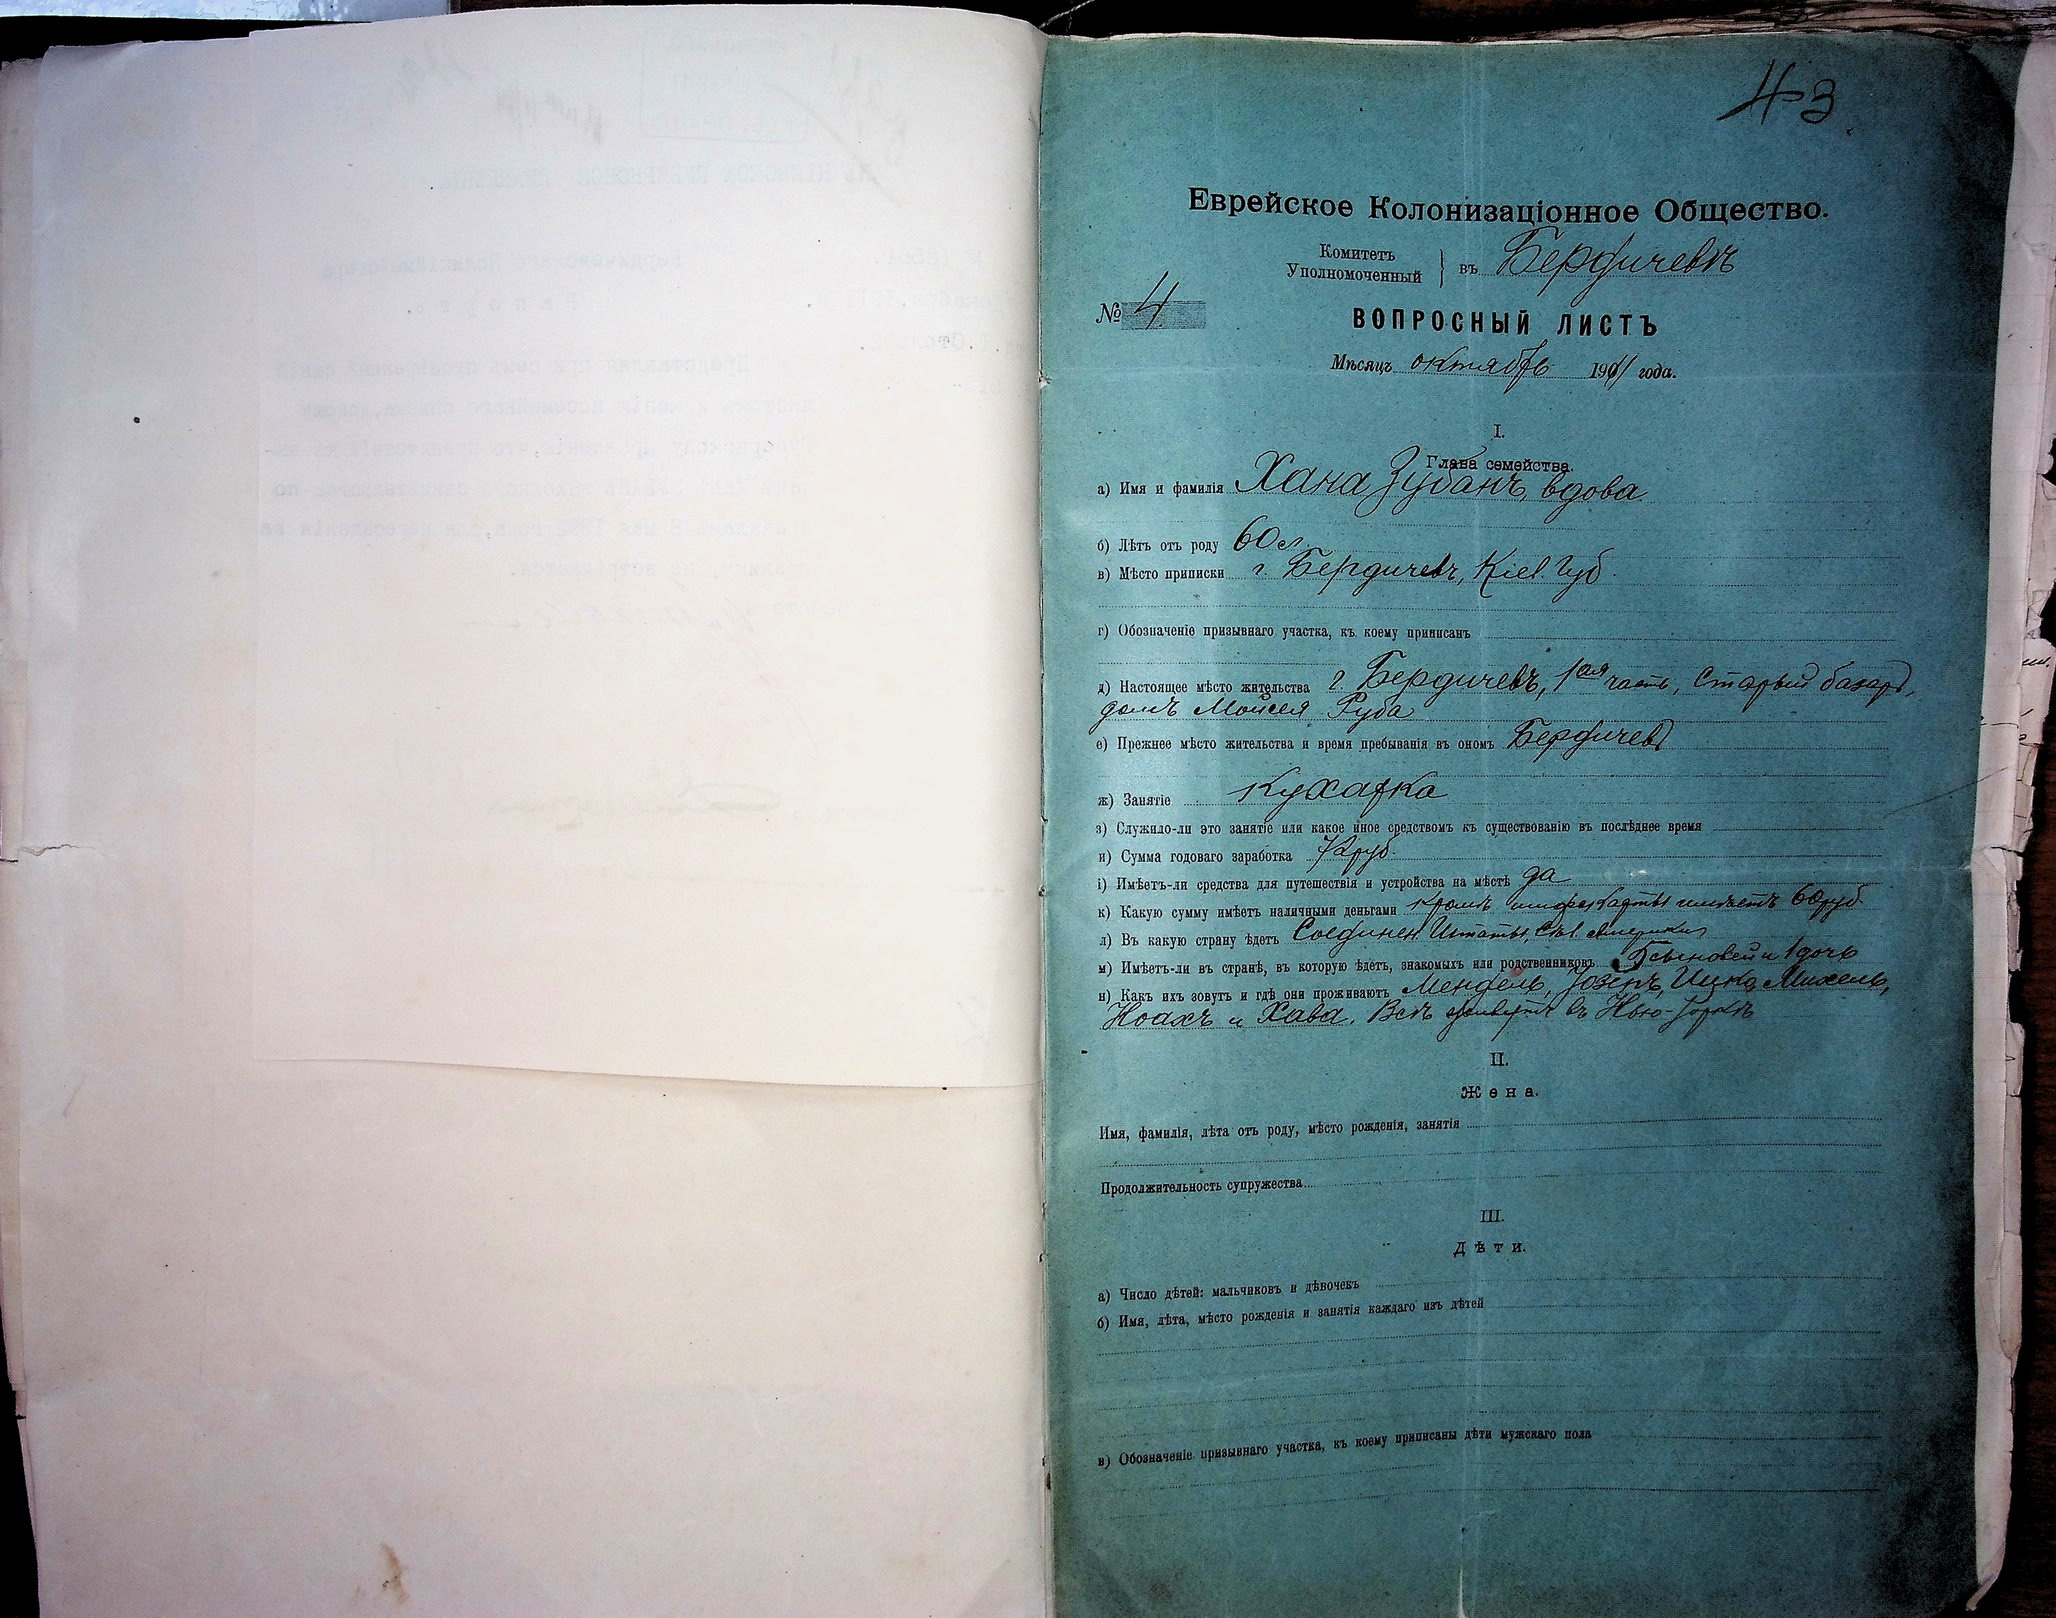 43
Еврейское Колонизаціонное Общество.
Комитетъ
Уполномоченный } въ Бердичевѣ
№ 4
ВОПРОСНЫЙ ЛИСТЪ
Мѣсяцъ октябрь 1911 года.
I.
Глава семейства.
а) Имя и фамилія Хана Зубанъ, вдова
б) Лѣтъ отъ роду 60 л.
в) Мѣсто приписки г. Бердичевъ, Кіев. губ.
г) Обозначеніе призывнаго участка, къ коему приписанъ
д) Настоящее мѣсто жительства г. Бердичевъ, 1ая часть, Старый базаръ,
домъ Мойсея Руба
е) Прежнее мѣсто жительства и время пребыванія въ ономъ Бердичевъ
ж) Занятіе кухарка
з) Служило-ли это занятіе или какое иное средствомъ къ существованію въ послѣднее время
и) Сумма годоваго заработка 72 руб.
і) Имѣетъ-ли средства для путешествія и устройства на мѣстѣ да
к) Какую сумму имѣетъ наличными деньгами кромѣ шифскарты имѣетъ 60 руб.
л) Въ какую страну ѣдетъ Соединен. Штаты, Сѣв. Америки
м) Имѣетъ-ли въ странѣ, въ которую ѣдетъ, знакомыхъ или родственниковъ 5 сыновей и 1 дочь
н) Какъ ихъ зовутъ и гдѣ они проживаютъ Мендель, Іозепъ, Ицко, Михель,
Ноахъ и Хава. Всѣ живутъ въ Нью-Іоркѣ
II.
Жена.
Имя, фамилія, лѣта отъ роду, мѣсто рожденія, занятія
Продолжительность супружества
III.
Дѣти.
а) Число дѣтей: мальчиковъ и дѣвочекъ
б) Имя, лѣта, мѣсто рожденія и занятія каждаго изъ дѣтей
в) Обозначеніе призывнаго участка, къ коему приписаны дѣти мужскаго пола